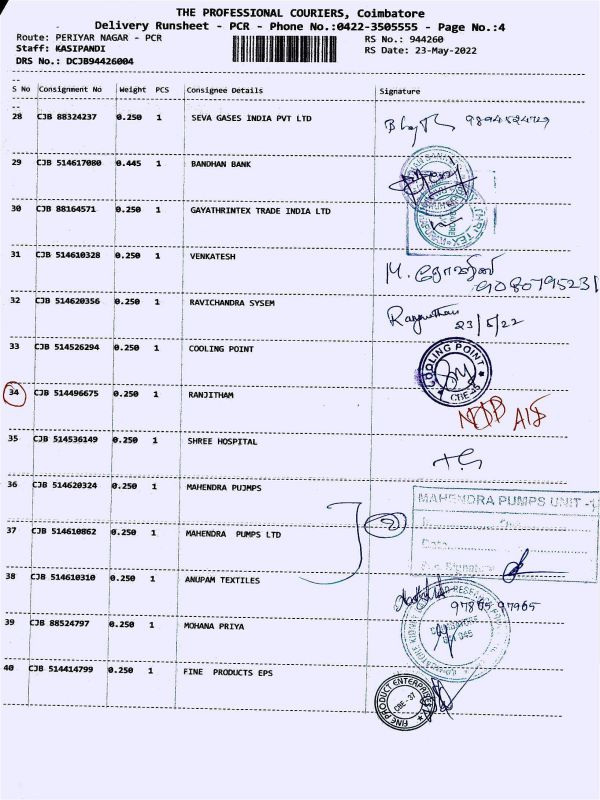 THE PROFESSIONAL COURIERS, Coimbatore
Delivery Runsheet - PCR - Phone No.:0422-3505555 - Page No.:4
Route: PERIYAR NAGAR - PCR
RS No.: 944260
Staff: KASIPANDI
RS Date: 23-May-2022
DRS No.: DCJB94426004
S No Consignment No Weight PCS Consignee Details Signature
28 CJB 88324237 0.250 1 SEVA GASES INDIA PVT LTD
29 CJB 514617080 0.445 1 BANDHAN BANK
30 CJB 88164571 0.250 1 GAYATHRINTEX TRADE INDIA LTD
31 CJB 514610328 0.250 1 VENKATESH
M.
9080795231
32 CJB 514620356 0.250 1 RAVICHANDRA SYSEM
23/5/22
33 CJB 514526294 0.250 1 COOLING POINT
COOLING POINT
CBE-45
34 CJB 514496675 0.250 1 RANJITHAM
35 CJB 514536149 0.250 1 SHREE HOSPITAL
36 CJB 514620324 0.250 1 MAHENDRA PUJMPS
MAHENDRA PUMPS UNIT -
37 CJB 514610862 0.250 1 MAHENDRA PUMPS LTD
2
Date
Signature
38 CJB 514610310 0.250 1 ANUPAM TEXTILES
97865 97965
39 CJB 88524797 0.250 1 MOHANA PRIYA
40 CJB 514414799 0.250 1 FINE PRODUCTS EPS
FINE PRODUCT ENTERPRISES
CBE-37